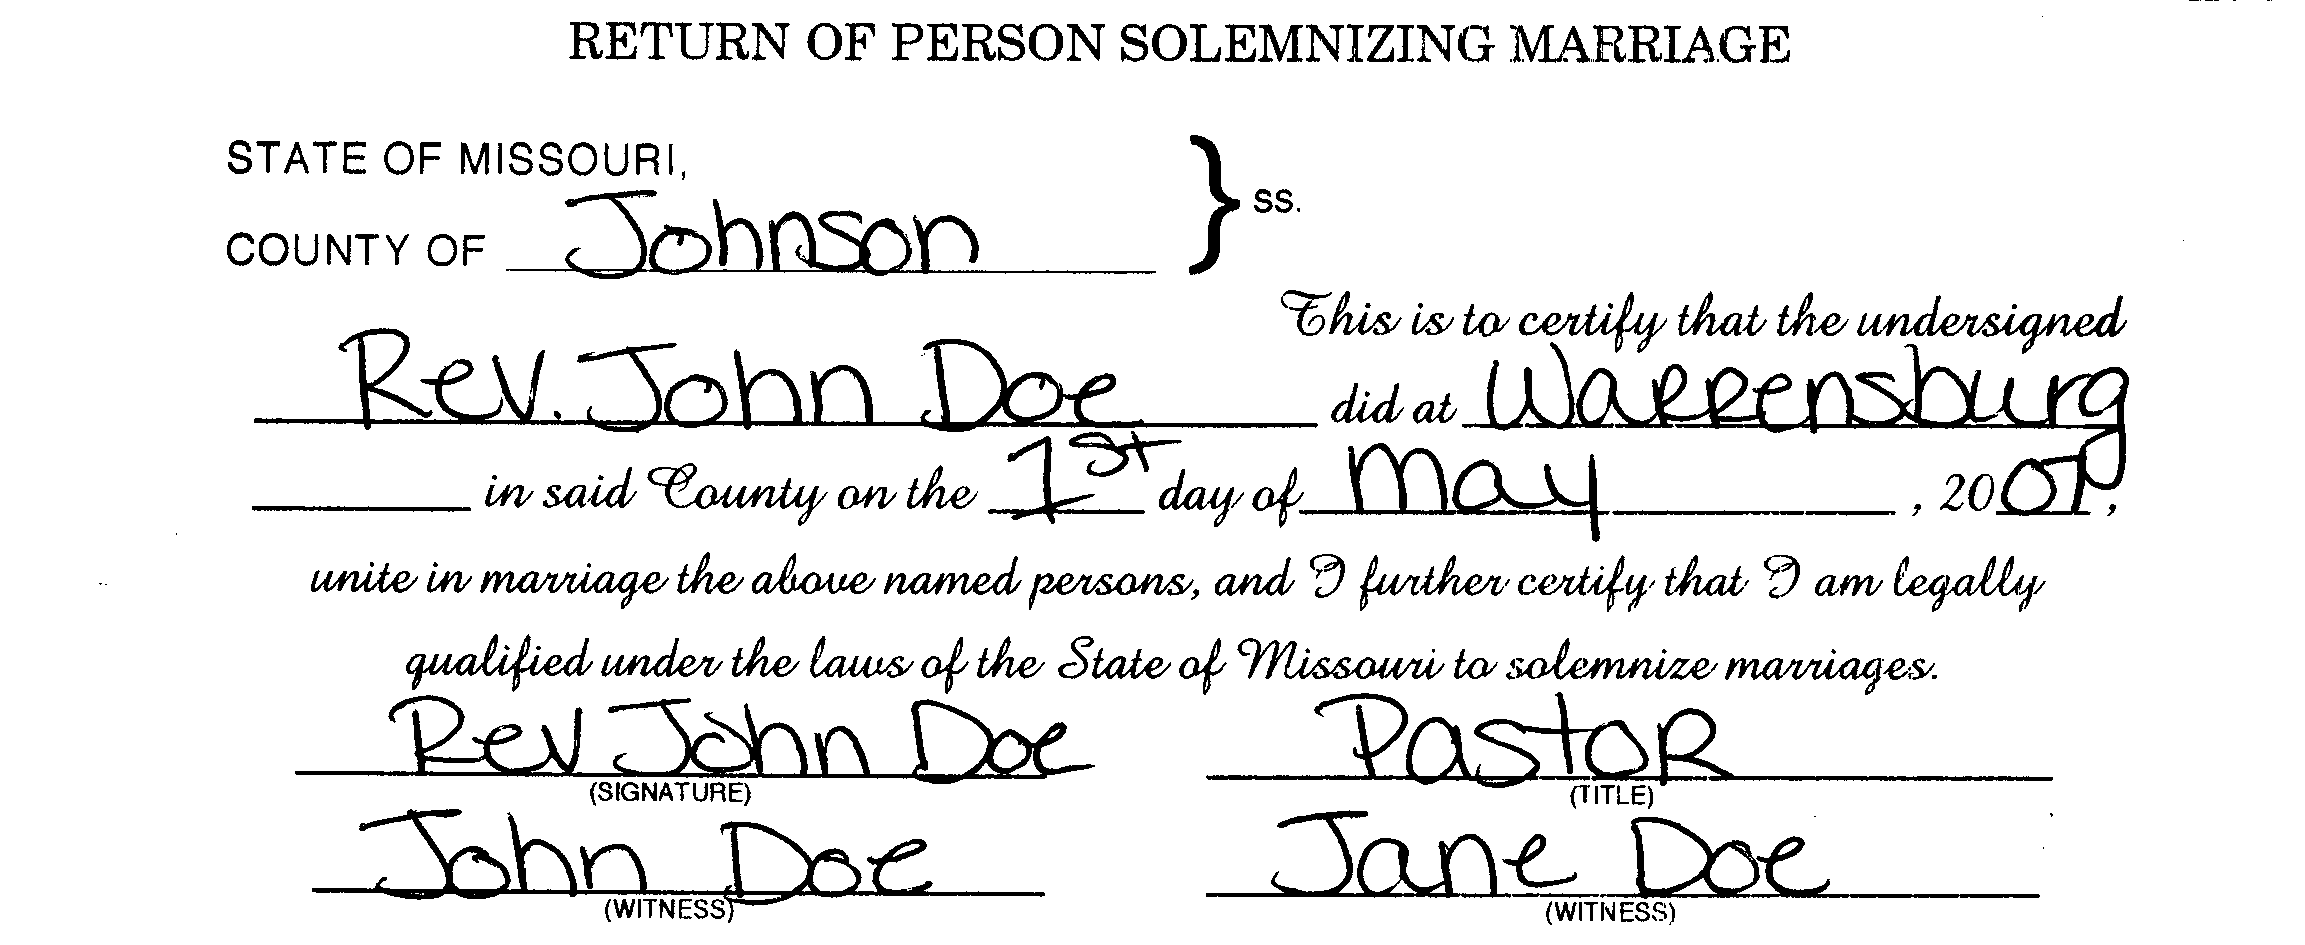 RETURN OF PERSON SOLEMNIZING MARRIAGE
STATE OF MISSOURI,
COUNTY OF Johnson } SS.
This is to certify that the undersigned
Rev. John Doe did at Warrensburg
in said County on the 1st day of May, 2007,
unite in marriage the above named persons, and I further certify that I am legally
qualified under the laws of the State of Missouri to solemnize marriages.
Rev John Doe Pastor
(SIGNATURE) (TITLE)
John Doe Jane Doe
(WITNESS) (WITNESS)